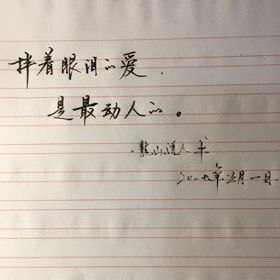 拌着眼泪的爱.
是最动人的。
山道人 书
二〇一七年 月一日